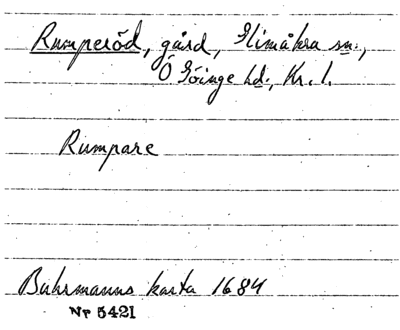 Rumperöd, gård, Glimåkra sn.,
Ö Göinge hd., Kr. l.
Rumpare
Buhrmanns karta 1684
Nr 5421